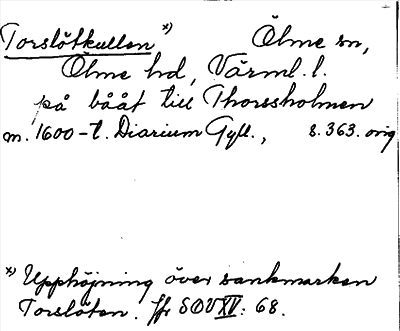 Torslötkullen *) Ölme sn,
Ölme hd, Värml. l.
på bååt till Thorssholmen
m. 1600-t. Diarium Gyll., s. 363. orig
*) Upphöjning över sankmarken
Torslöten. Jfr SOV XV: 68.